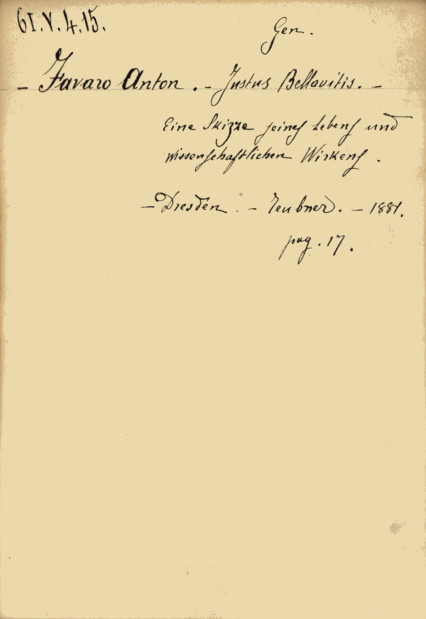 61.V.4.15.
Gen.
- Favaro Anton. - Justus Bellavitis. -
Eine Skizze seines Lebens und
wissenschaftlichen Wirkens.
- Dresden. - Teubner. - 1881.
pag. 17.